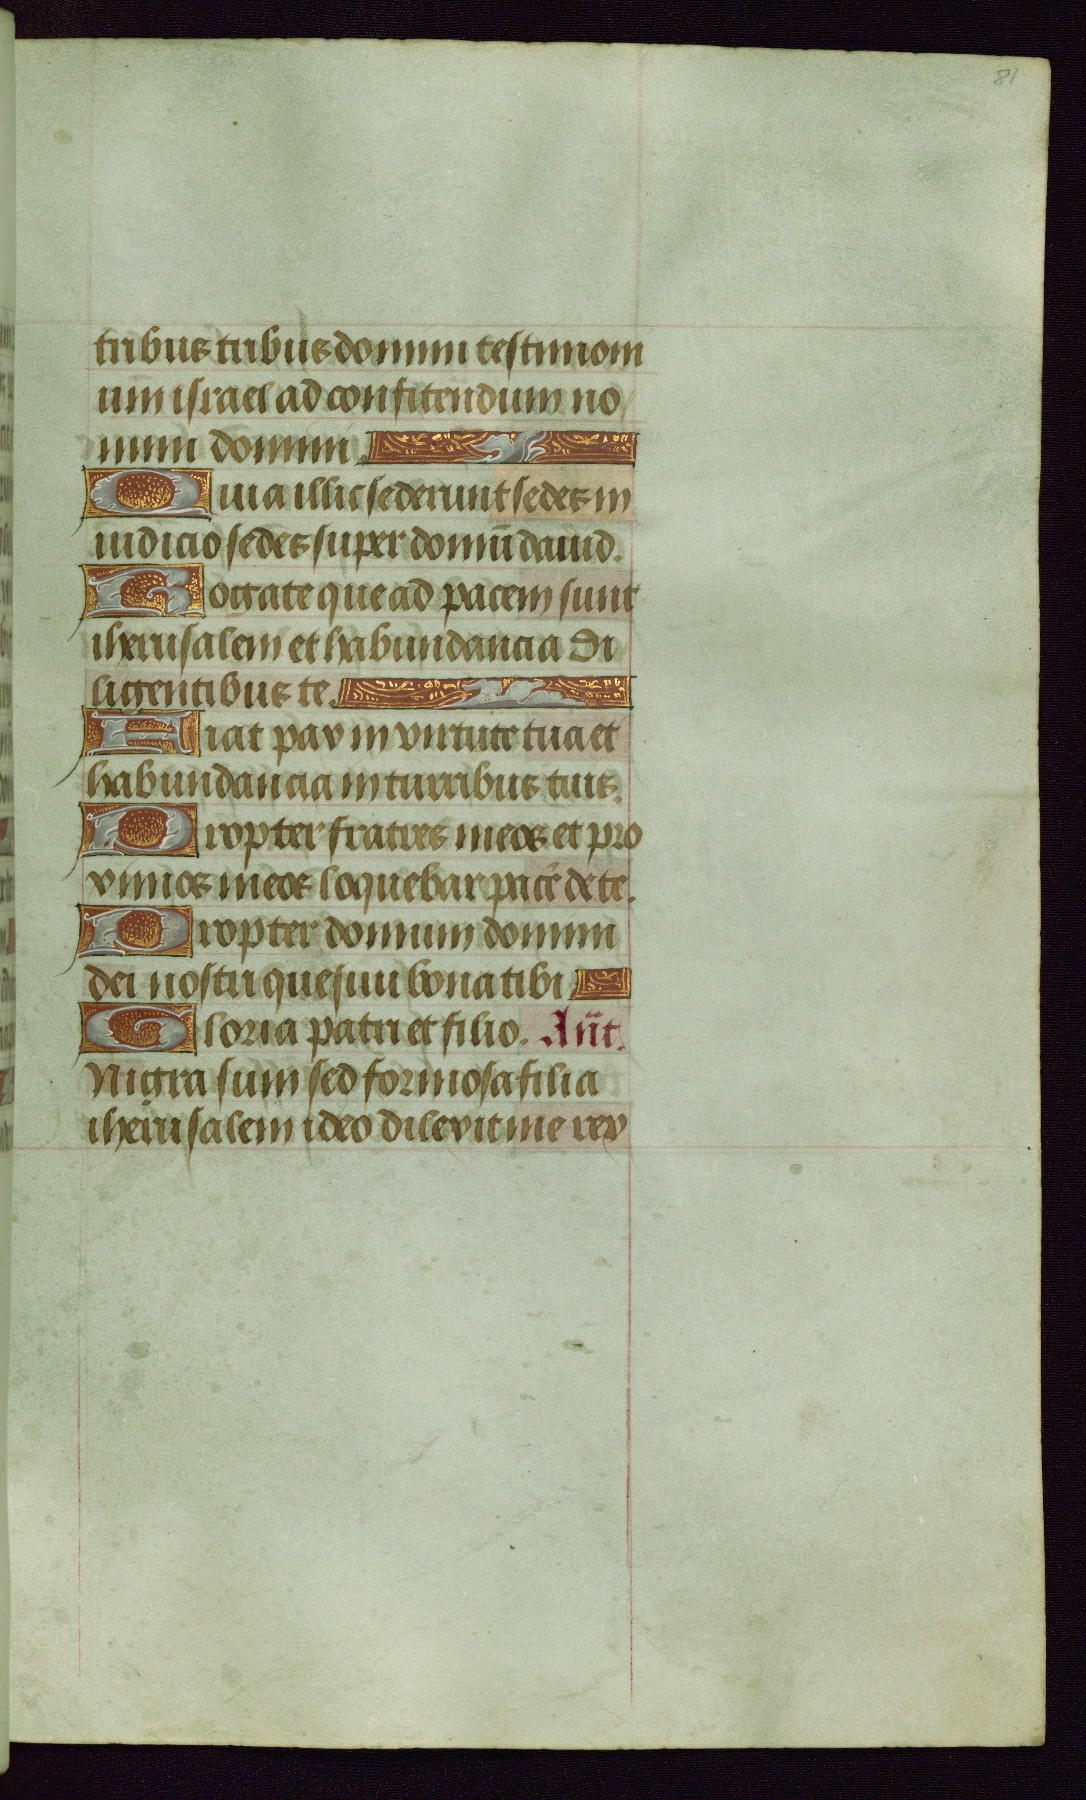 81
tribus tribus domini testimoni
um israel ad confitendum no
mini domini.
Quia illic sederunt sedes in
iudicio sedes super domū dauid.
Rogate que ad pacem sunt
iherusalem et habundancia di
ligentibus te.
Fiat pax in virtute tua et
habundancia in turribus tuis.
Propter fratres meos et pro
ximos meos loquebar pacē de te.
Propter domum domini
dei nostri quesiui bona tibi
Gloria patri et filio. Añt.
Nigra sum sed formosa filia
iherusalem ideo dilexit me rex